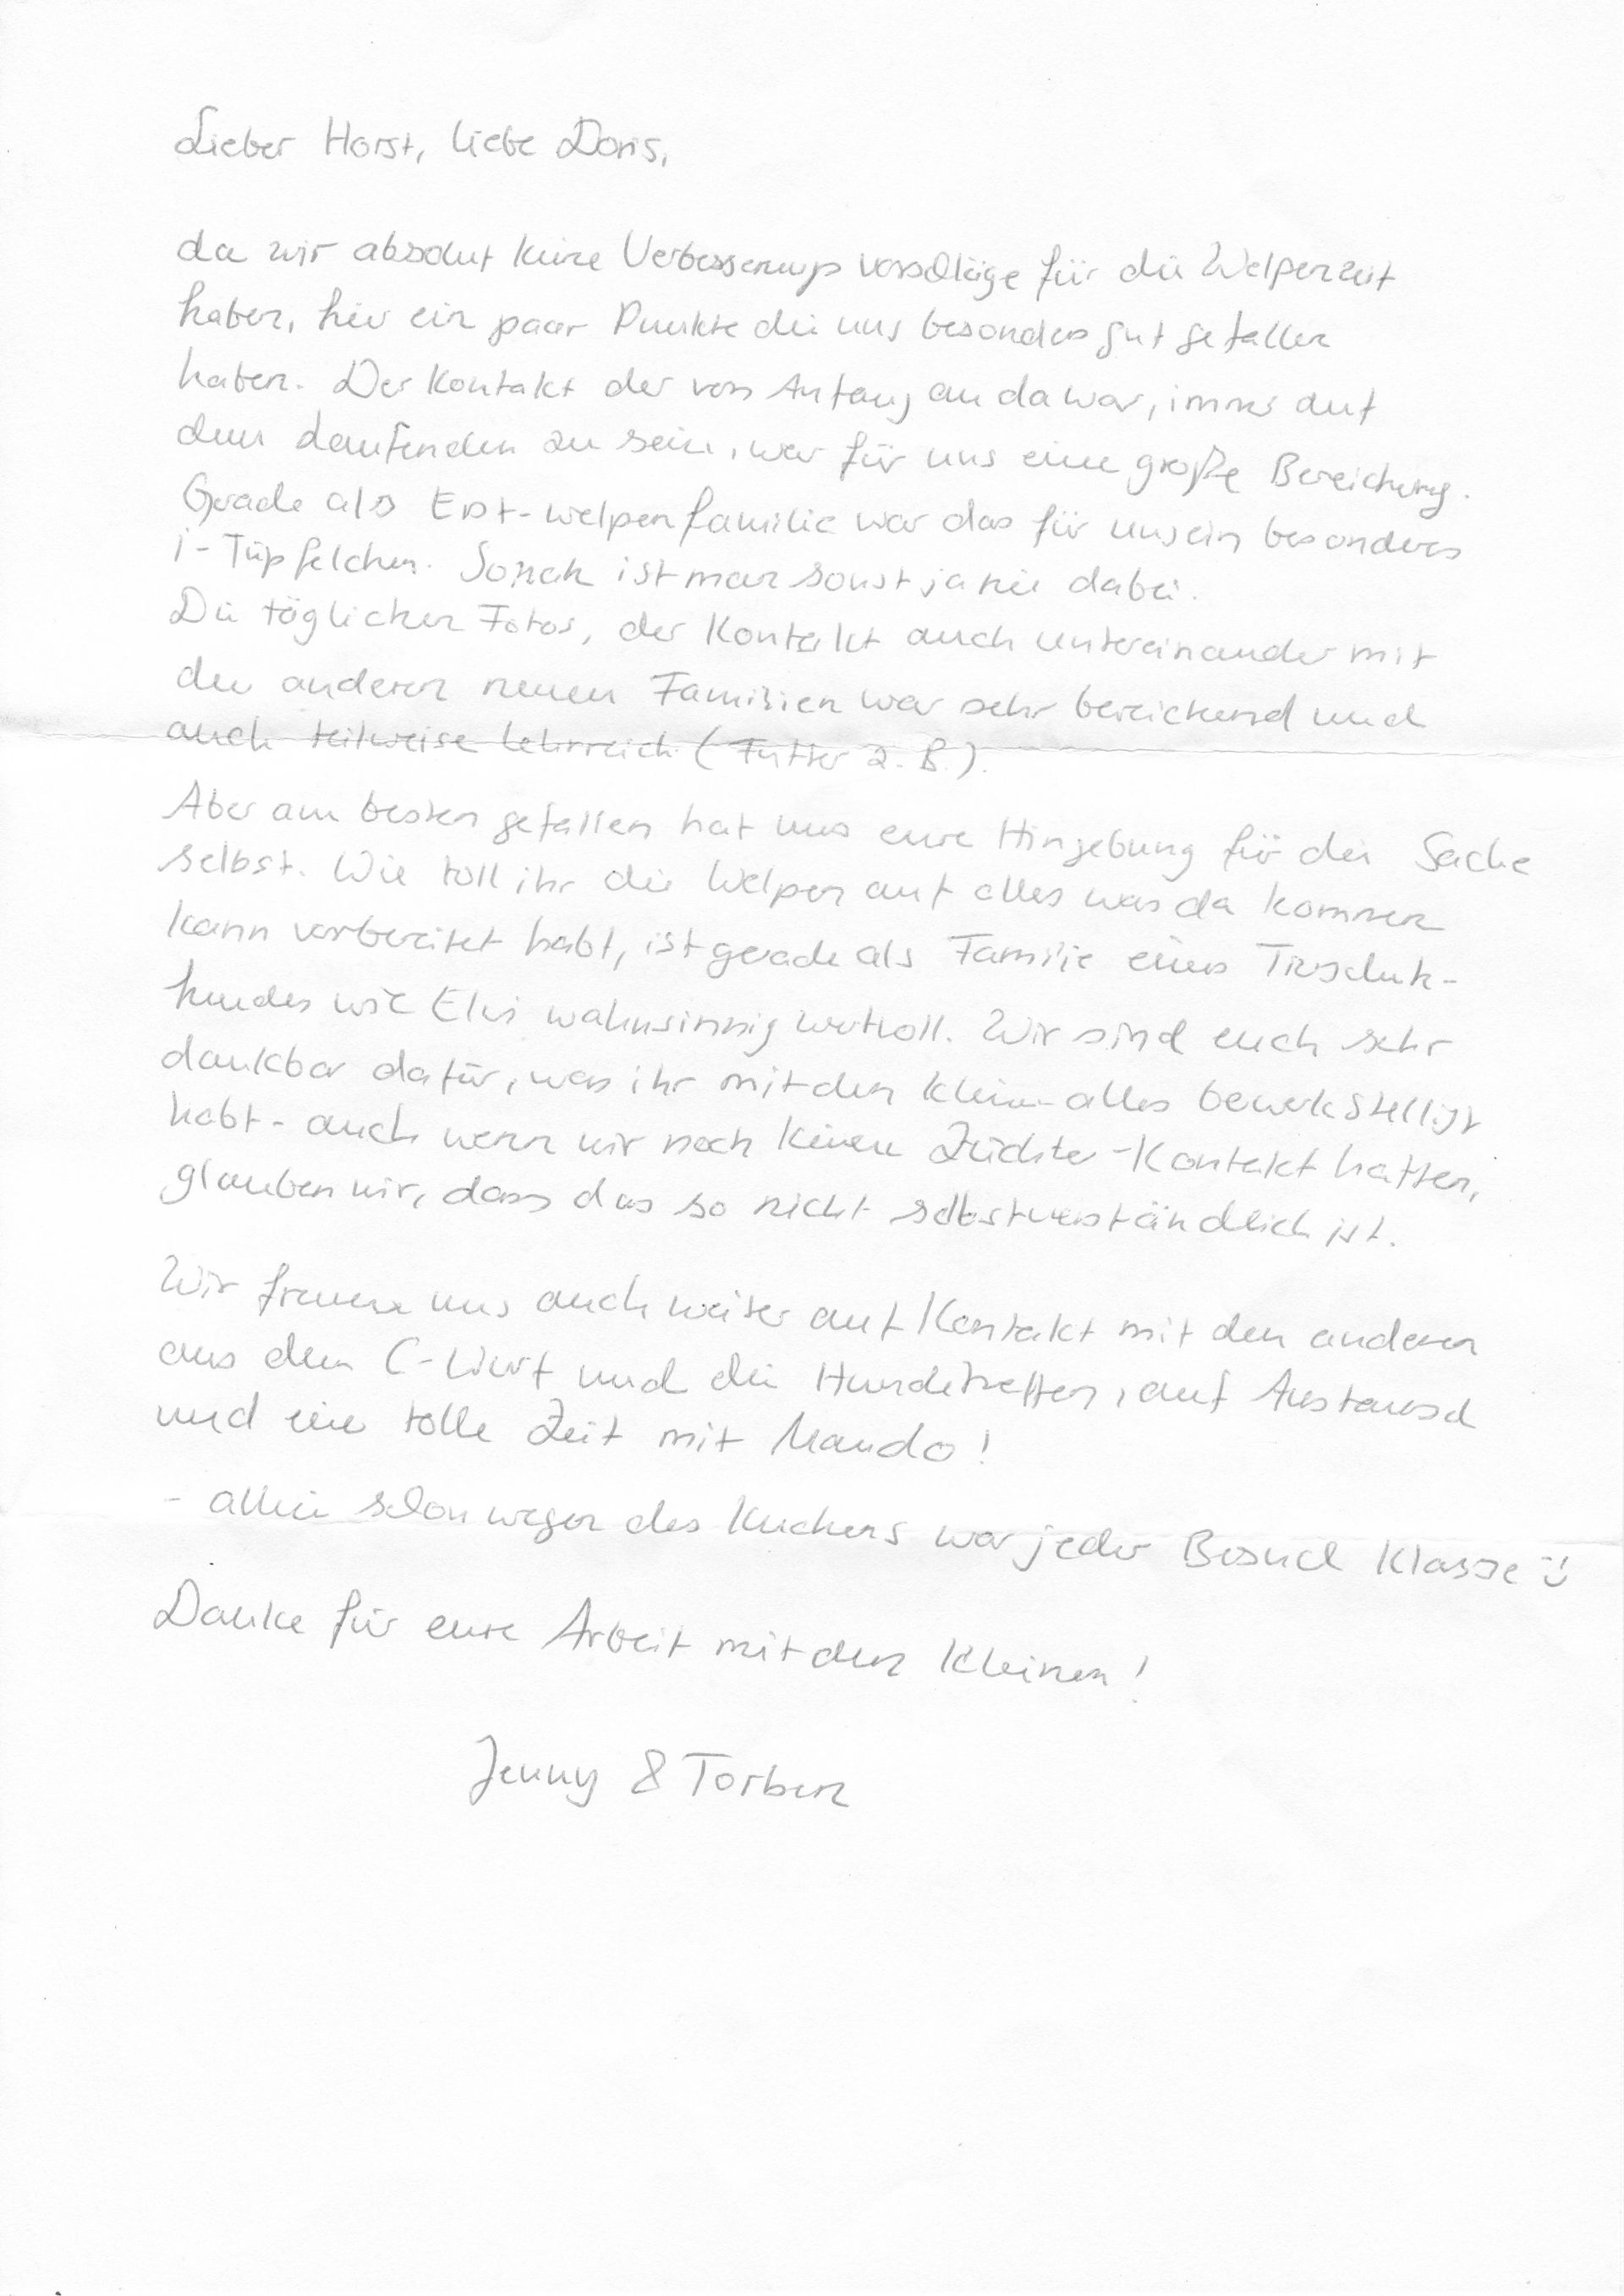 Lieber Horst, liebe Doris,
da wir absolut keine Verbesserungsvorschläge für die Welpenzeit
haben, hier ein paar Punkte die uns besonders gut gefallen
haben. Der Kontakt der von Anfang an da war, immer auf
dem Laufenden zu sein, war für uns eine große Bereicherung.
Gerade als Erst-welpenfamilie war das für uns ein besonderes
i-Tüpfelchen. So nah ist man sonst ja nie dabei.
Die täglichen Fotos, der Kontakt auch untereinander mit
den anderen neuen Familien war sehr bereichernd und
auch teilweise lehrreich (Futter z.B.).
Aber am besten gefallen hat uns eure Hingebung für die Sache
selbst. Wie toll ihr die Welpen auf alles was da kommen
kann vorbereitet habt, ist gerade als Familie eines
hundes wie wahnsinnig wertvoll. Wir sind euch sehr
dankbar dafür, was ihr mit den kleinen alles bewerkstelligt
habt - auch wenn wir noch keinen Züchter-Kontakt hatten,
glauben wir, dass das so nicht selbstverständlich ist.
Wir freuen uns auch weiter auf Kontakt mit den anderen
aus dem C-Wurf und die Hundetreffen, auf Austausch
und eine tolle Zeit mit Mando!
- allein schon wegen des Kuchens war jeder Besuch Klasse :)
Danke für eure Arbeit mit den Kleinen!
Jenny & Torben